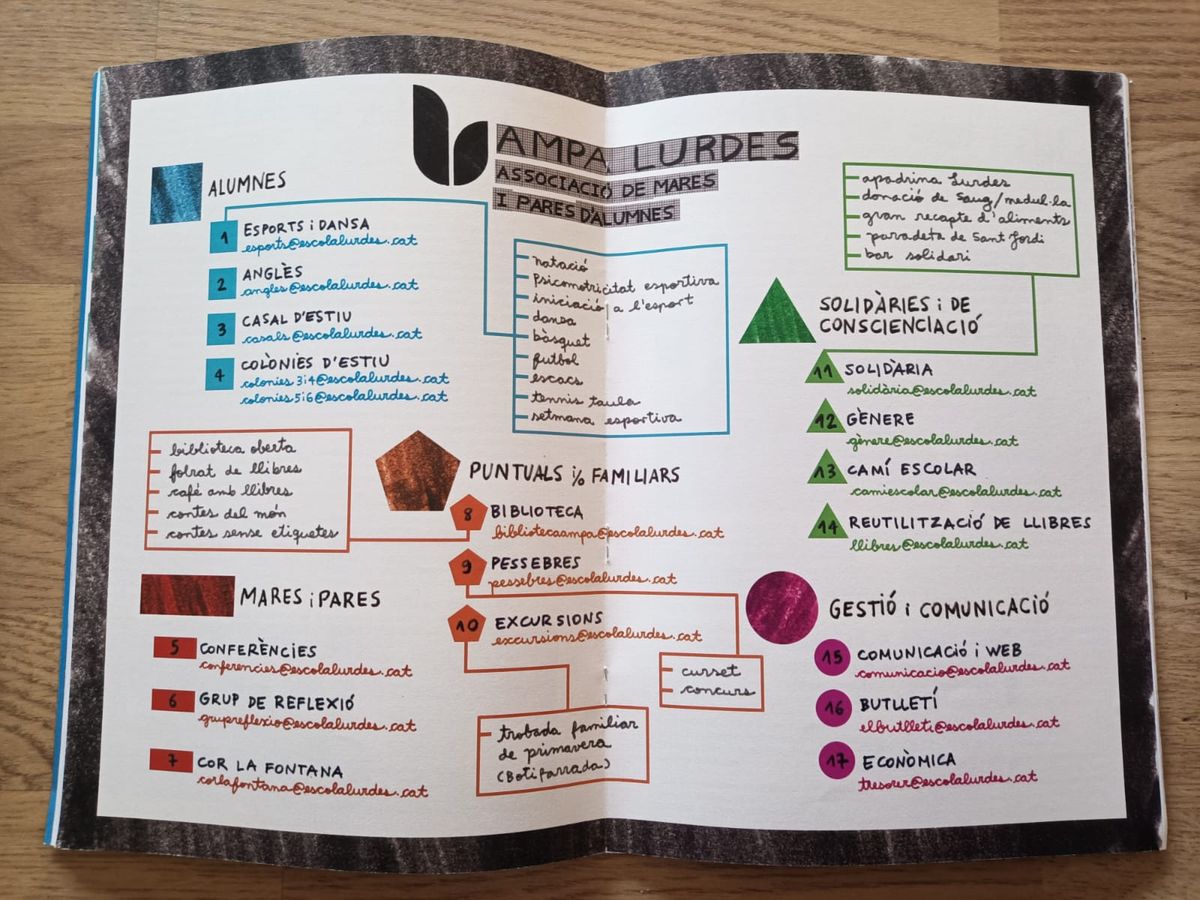 AMPA LURDES
ASSOCIACIÓ DE MARES
I PARES D'ALUMNES
ALUMNES
1 ESPORTS i DANSA
esports@escolalurdes.cat
2 ANGLÈS
angles@escolalurdes.cat
3 CASAL D'ESTIU
casals@escolalurdes.cat
4 COLÒNIES D'ESTIU
colonies3i4@escolalurdes.cat
colonies5i6@escolalurdes.cat
natació
psicomotricitat esportiva
iniciació a l'esport
dansa
bàsquet
futbol
escacs
tennis taula
setmana esportiva
biblioteca oberta
folrat de llibres
cafè amb llibres
contes del món
contes sense etiquetes
PUNTUALS i/o FAMILIARS
8 BIBLIOTECA
bibliotecaampa@escolalurdes.cat
9 PESSEBRES
pessebres@escolalurdes.cat
10 EXCURSIONS
excursions@escolalurdes.cat
curset
concurs
trobada familiar
de primavera
(Botifarrada)
MARES i PARES
5 CONFERÈNCIES
conferencies@escolalurdes.cat
6 GRUP DE REFLEXIÓ
grupreflexio@escolalurdes.cat
7 COR LA FONTANA
corlafontana@escolalurdes.cat
apadrina Lurdes
donació de Sang/medul·la
gran recapte d'aliments
paradeta de Sant Jordi
bar solidari
SOLIDÀRIES i DE
CONSCIENCIACIÓ
11 SOLIDÀRIA
solidària@escolalurdes.cat
12 GÈNERE
gènere@escolalurdes.cat
13 CAMÍ ESCOLAR
camiescolar@escolalurdes.cat
14 REUTILITZACIÓ DE LLIBRES
llibres@escolalurdes.cat
GESTIÓ i COMUNICACIÓ
15 COMUNICACIÓ i WEB
comunicacio@escolalurdes.cat
16 BUTLLETÍ
elbutlleti@escolalurdes.cat
17 ECONÒMICA
tresorer@escolalurdes.cat